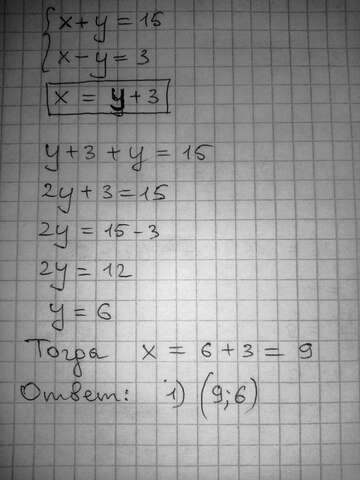 {x+y=15
{x-y=3
x = y+3
y+3+y=15
2y+3=15
2y=15-3
2y=12
y=6
Тогда x = 6+3 = 9
Ответ: 1) (9;6)